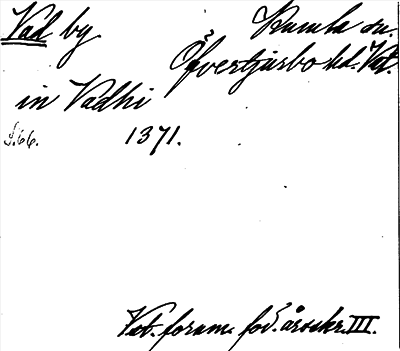 Vad by Kumla sn.
Öfvertjurbo hd. Vst.
in Vadhi
S. 66. 1371.
Vst. fornm. för. årsskr. III.